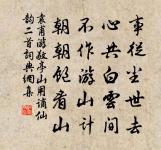 事從塵世去
心共白雲間
不作游山計
朝朝飽看山
袁甫游敬亭山用謫仙
韻二首詞典網集